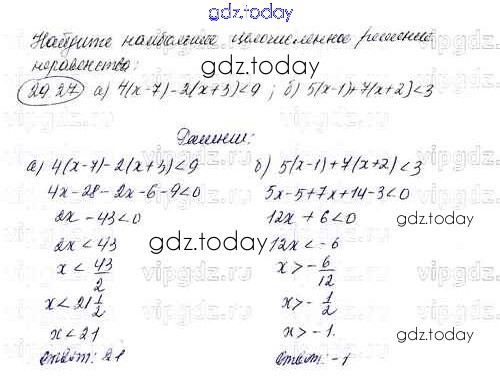 gdz.today
Найдите наибольшее целочисленное решение
неравенства:
gdz.today
29.27 а) 4(x-7)-2(x+3)<9 ; б) 5(x-1)+7(x+2)<3
Решение:
а) 4(x-7)-2(x+3)<9 б) 5(x-1)+7(x+2)<3
4x-28-2x-6-9<0 5x-5+7x+14-3<0
2x-43<0 12x+6<0
gdz.today
2x<43 12x<-6
x<43/2 x>-6/12
vipgdz.ru
x<21 1/2 x>-1/2
x<21 x>-1.
gdz.today
Ответ: 21 Ответ: -1